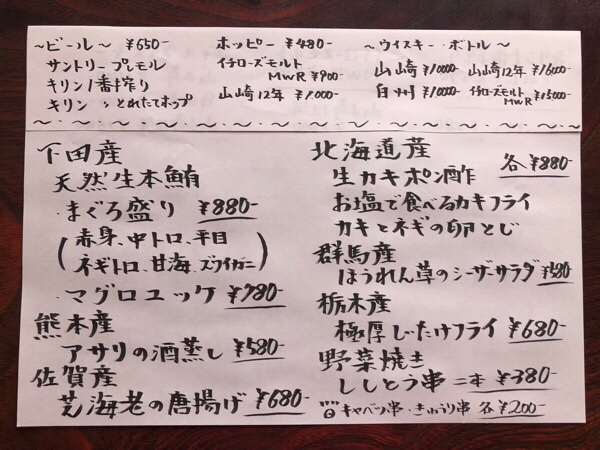 ～ビール～ ¥650-
サントリープレモル
キリン1番搾り
キリン 〃 とれたてホップ
ホッピー ¥480-
イチローズモルト
MWR ¥900-
山崎12年 ¥1000-
～ウイスキー・ボトル～
山崎 ¥10000- 山崎12年 ¥16000-
白州 ¥10000- イチローズモルト
MWR ¥15000-
下田産
天然生本鮪
まぐろ盛り ¥880-
(赤身、中トロ、平目
ネギトロ、甘海、ズワイガニ)
マグロユッケ ¥780-
熊本産
アサリの酒蒸し ¥580-
佐賀産
芝海老の唐揚げ ¥680-
北海道産
生カキポン酢 各¥880-
お塩で食べるカキフライ
カキとネギの卵とじ
群馬産
ほうれん草のシーザサラダ ¥580
栃木産
極厚しいたけフライ ¥680-
野菜焼き
ししとう串 二本 ¥380-
キャベツ串・きゅうり串 各¥200-